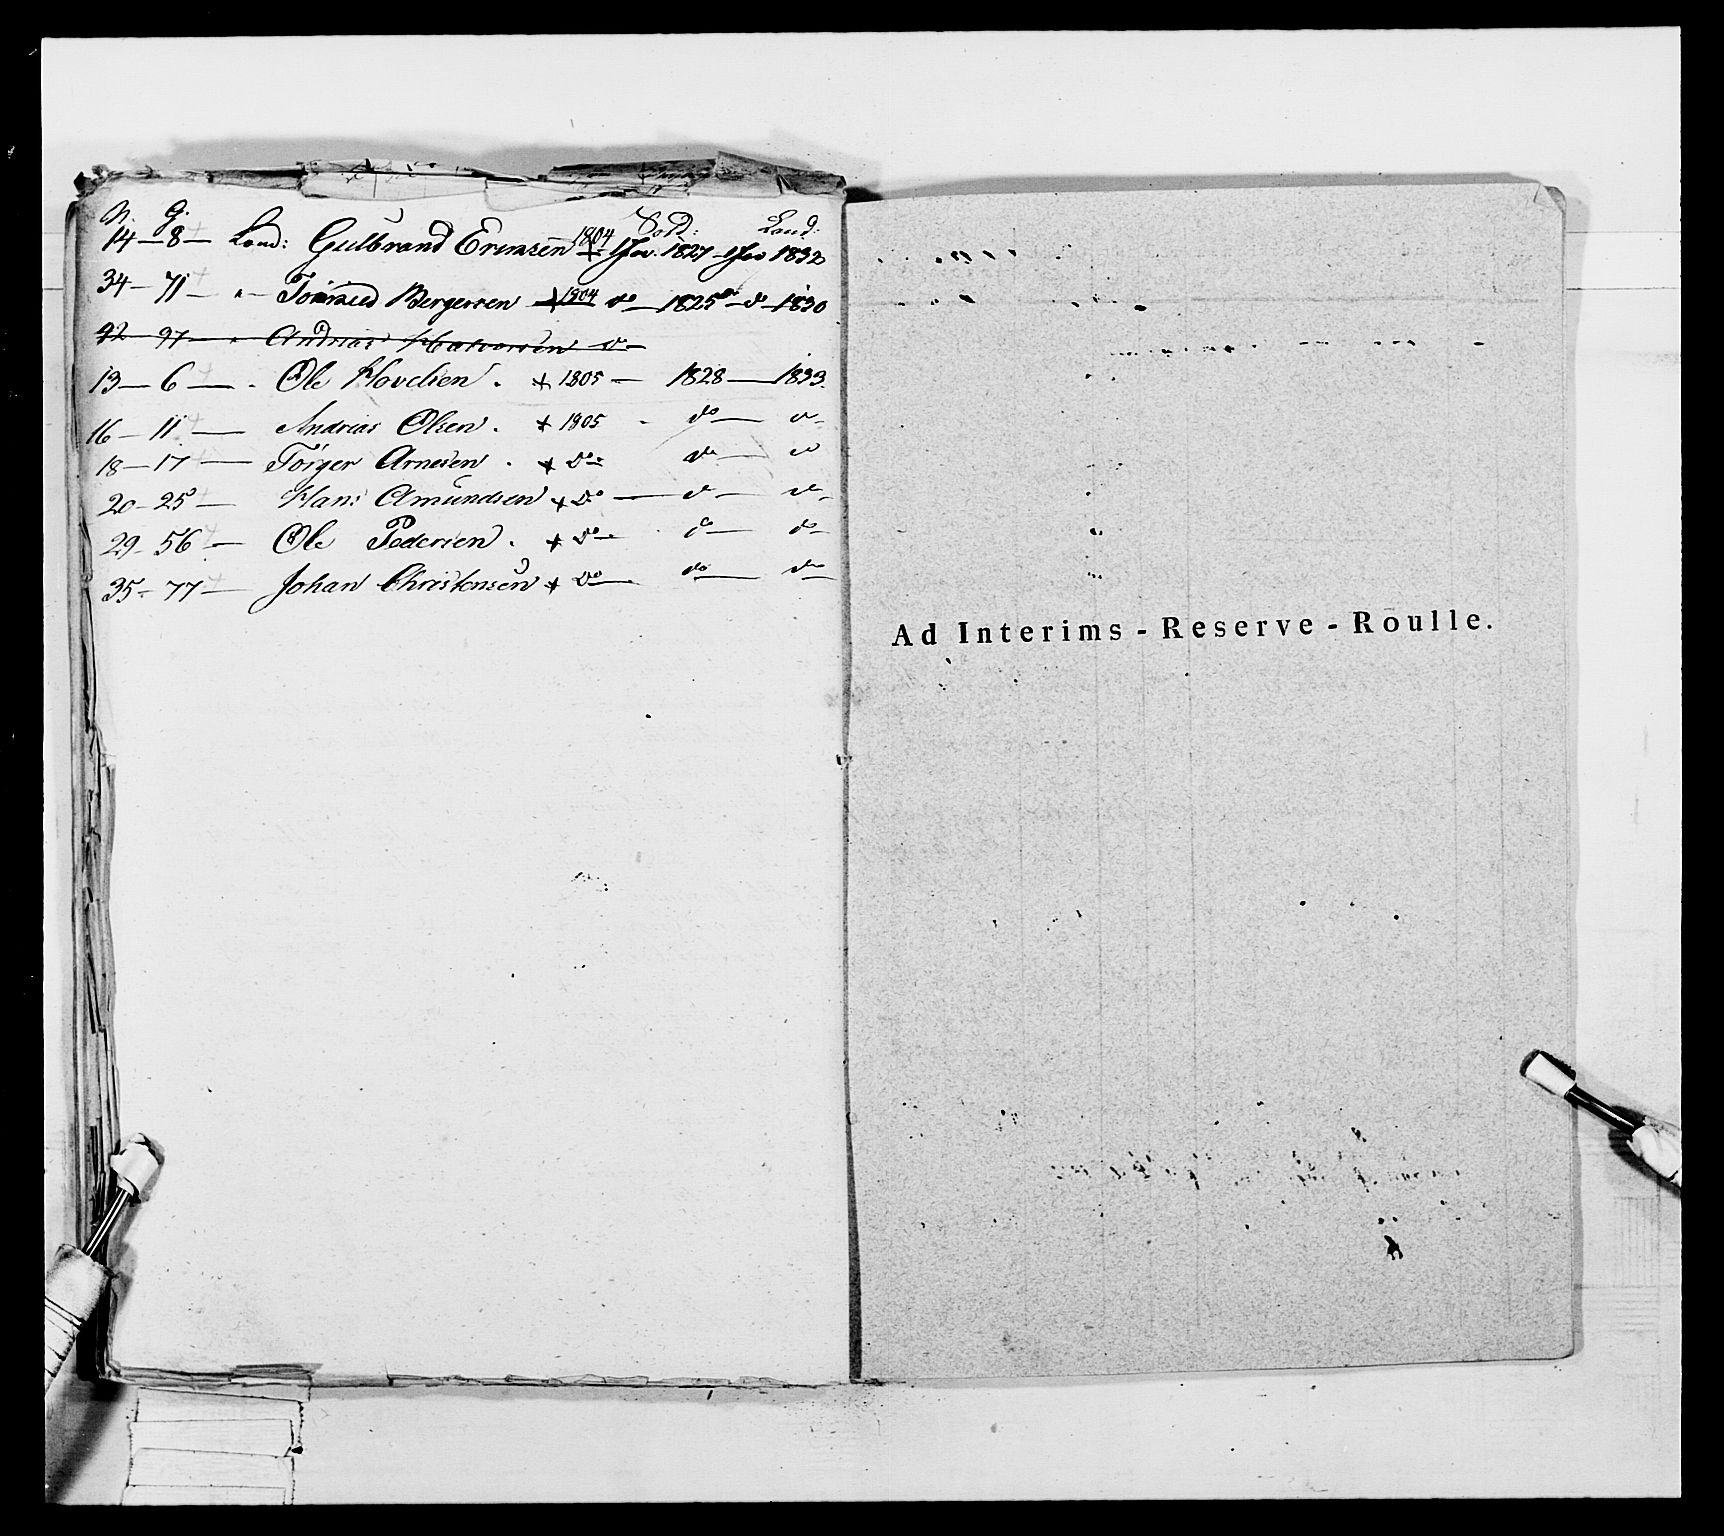 N. G. Sold: Land:
14 – 8 – Land: Gulbrand Erensen + 1804 1 Jan. 1827 – 1 Jan 1832
34 – 71 – " – Bergersen + 1804 do – 1825 – do – 1830
42 – 97 – " – Andrias Halvorsen do –
13 – 6 – . Ole Hovelsen . + 1805 – 1828 – 1833.
16 – 11 – Andrias Olsen . + 1805 - do – do –
18 – 17 – Torger Arnesen . + do – do – do
20 – 25 – Hans Amundsen + do – do – do –
29 – 56 – Ole Pedersen . + do – do – do –
35 – 77 – Johan Christensen + do – do – do –
Ad Interims - Reserve - Roulle.